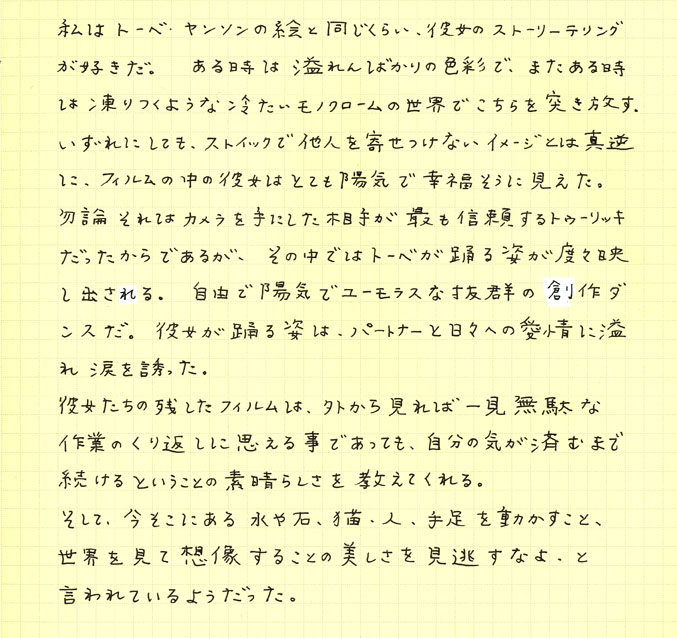 私は トーベ・ヤンソンの絵と同じくらい、彼女の ストーリーテリング
が好きだ。 ある時は 溢れんばかりの色彩で、またある時
は 凍りつくような 冷たいモノクロームの世界でこちらを 突き放す.
いずれにしても、ストイックで 他人を寄せつけないイメージとは真逆
に、フィルムの中の彼女はとても陽気で幸福そうに見えた。
勿論 それは カメラを手にした相手が 最も信頼するトゥーリッキ
だったからであるが、 その中では トーベが踊る姿が度々映
し出される。 自由で陽気でユーモラスな抜群の 創作ダ
ンスだ。 彼女が踊る姿は、パートナーと日々への愛情に溢
れ 涙を誘った。
彼女たちの残したフィルムは、外から見れば一見 無駄な
作業のくり返しに思える事であっても、自分の気が済むまで
続けるということの素晴らしさを 教えてくれる。
そして、今そこにある 水や石、猫、人、手足を動かすこと、
世界を見て想像することの美しさを見逃すなよ、と
言われているようだった。